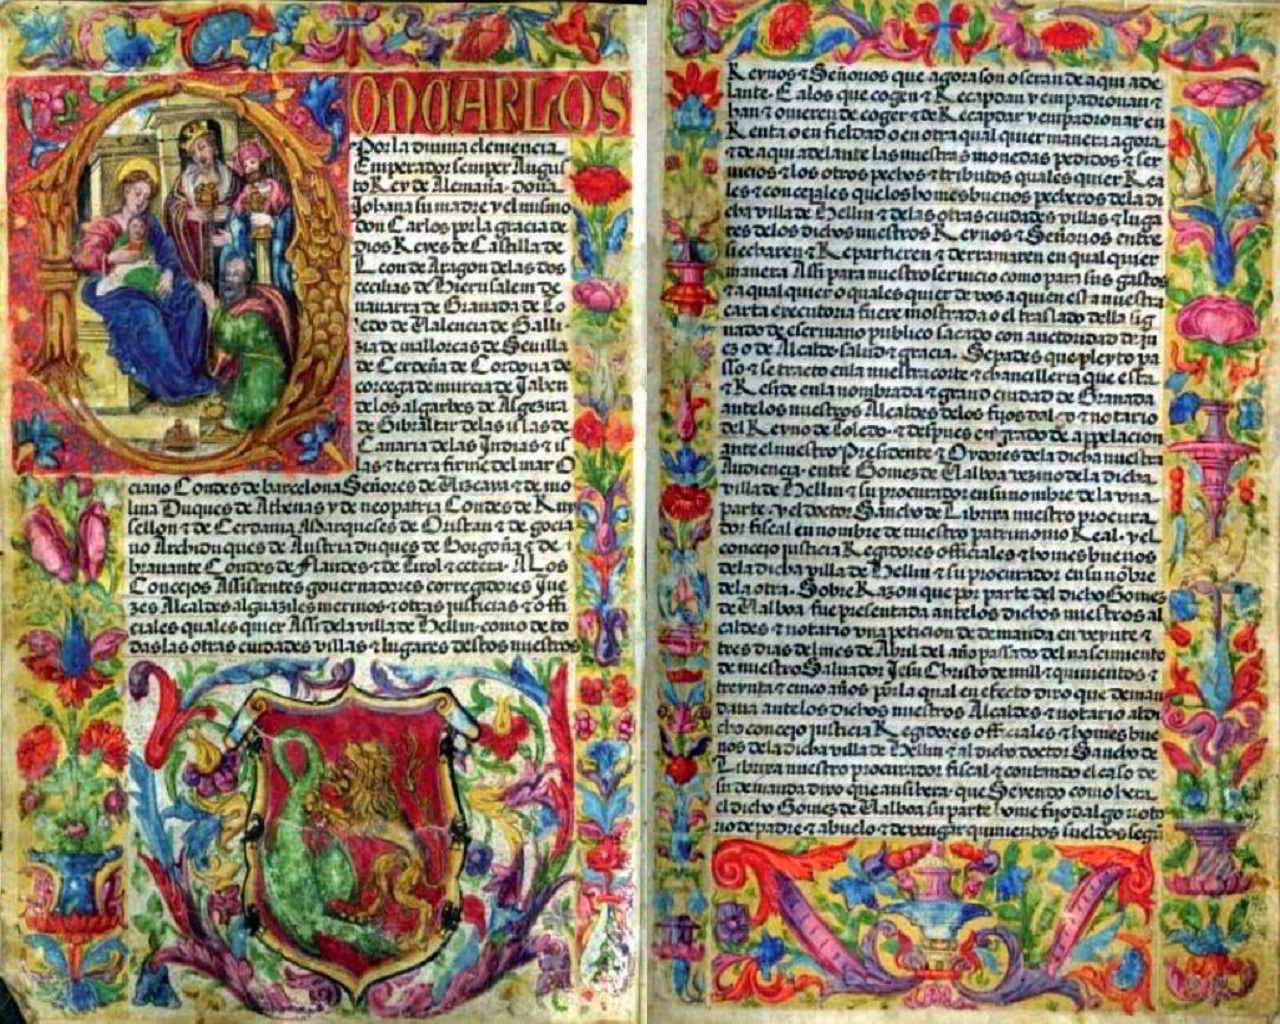 ON CARLOS
Por la diuina clemencia
Emperador semper Augus
to Rey de Alemaña. doña
Johana su madre y el mismo
don Carlos por la gracia de
dios Reyes de Castilla de
Leon de Aragon de las dos
cecilias de Hierusalem de
nauarra de Granada de To
ledo de Valencia de Galli
zia de mallorcas de Seuilla
de Cerdeña de Cordoua de
corcega de murcia de Jahen
de los algarbes de Algezira
de Gibraltar de las islas de
Canaria de las Indias t is
las t tierra firme del mar O
ciano Condes de barcelona Señores de Vizcaya t de mo
lina Duques de Athenas y de neopatria Condes de Ruy
sellon t de Cerdania Marqueses de Oristan t de gocia
no Archiduques de Austria duques de Borgoña t de
brauante Condes de Flandes t de Tirol t cetera. A Los
Concejos Assistentes gouernadores corregidores Jue
zes Alcaldes alguaziles merinos t otras justicias t offi
ciales quales quier Assi de la villa de Hellin. como de to
das las otras ciudades villas t lugares destos nuestros
Reynos t Señorios que agora son o seran de aqui ade
lante. E a los que cogen t Recapdan y empadronan t
han t ouieren de coger t de Recapdar y empadronar en
Renta o en fieldad o en otra qual quier manera agora
t de aqui adelante las nuestras monedas pedidos t ser
uicios t los otros pechos t tributos quales quier Rea
les t concejales que los homes buenos pecheros de la di
cha villa de Hellin t de las otras ciudades villas t luga
res de los dichos nuestros Reynos t Señorios entre
si echaren t Repartieren t derramaren en qual quier
manera Assi para nuestro seruicio como para sus gastos
t a qual quier o quales quier de vos a quien esta nuestra
carta executoria fuere mostrada o el traslado della sig
nado de escriuano publico sacado con auctoridad de ju
ez o de Alcalde salud t gracia. Sepades que pleyto pa
sso t se tracto en la nuestra corte t chancilleria que esta
t Reside en la nombrada t grand ciudad de Granada
ante los nuestros Alcaldes de los fijos dal go t notario
del Reyno de Toledo. t despues en grado de appelacion
ante el nuestro Presidente t Oydores de la dicha nuestra
Audiencia. entre Gomez de Valboa vezino de la dicha
villa de Hellin t su procurador en su nombre de la vna
parte. y el doctor Sancho de Librixa nuestro procura
dor fiscal en nombre de nuestro patrimonio Real. y el
concejo justicia Regidores officiales t homes buenos
de la dicha villa de Hellin t su procurador en su nõbre
de la otra. Sobre Razon que por parte del dicho Gomez
de Valboa fue presentada ante los dichos nuestros al
caldes t notario vna peticion de demanda en veynte t
tres dias del mes de Abril del año passado del nascimiento
de nuestro Saluador Jesu Christo de mill t quinientos t
treynta t cinco años por la qual en efecto dixo que deman
daua ante los dichos nuestros Alcaldes t notario al di
cho concejo justicia Regidores officiales t homes bue
nos de la dicha villa de Hellin t al dicho doctor Sancho de
Librixa nuestro procurador fiscal t contando el caso de
su demanda dixo que ansi hera. que Seyendo como hera
el dicho Gomez de Valboa su parte home fijo dal go noto
rio de padre t abuelo t de vengar quinientos sueldos segũ